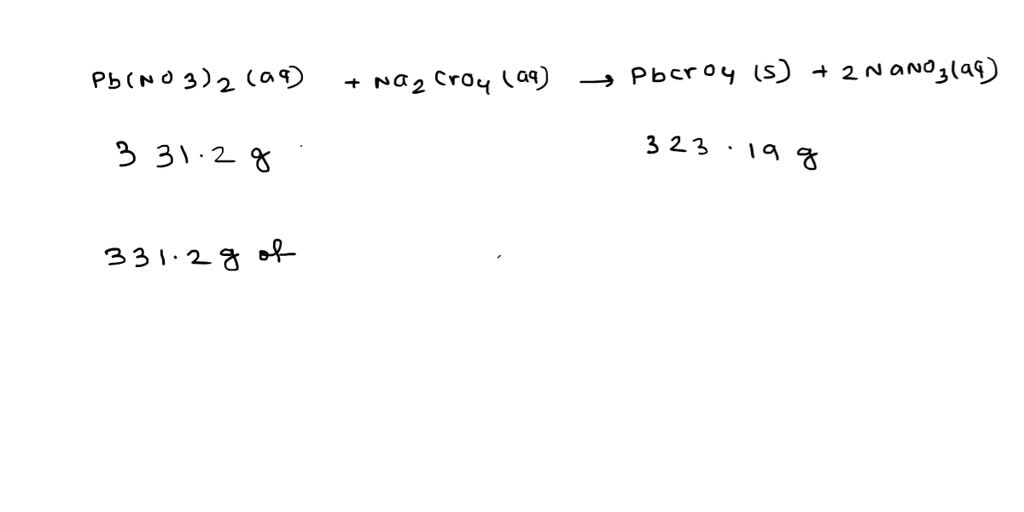 Pb(NO3)2 (aq) + Na2CrO4 (aq) → PbCrO4 (s) + 2NaNO3(aq)
331.2 g 323.19 g
331.2 g of